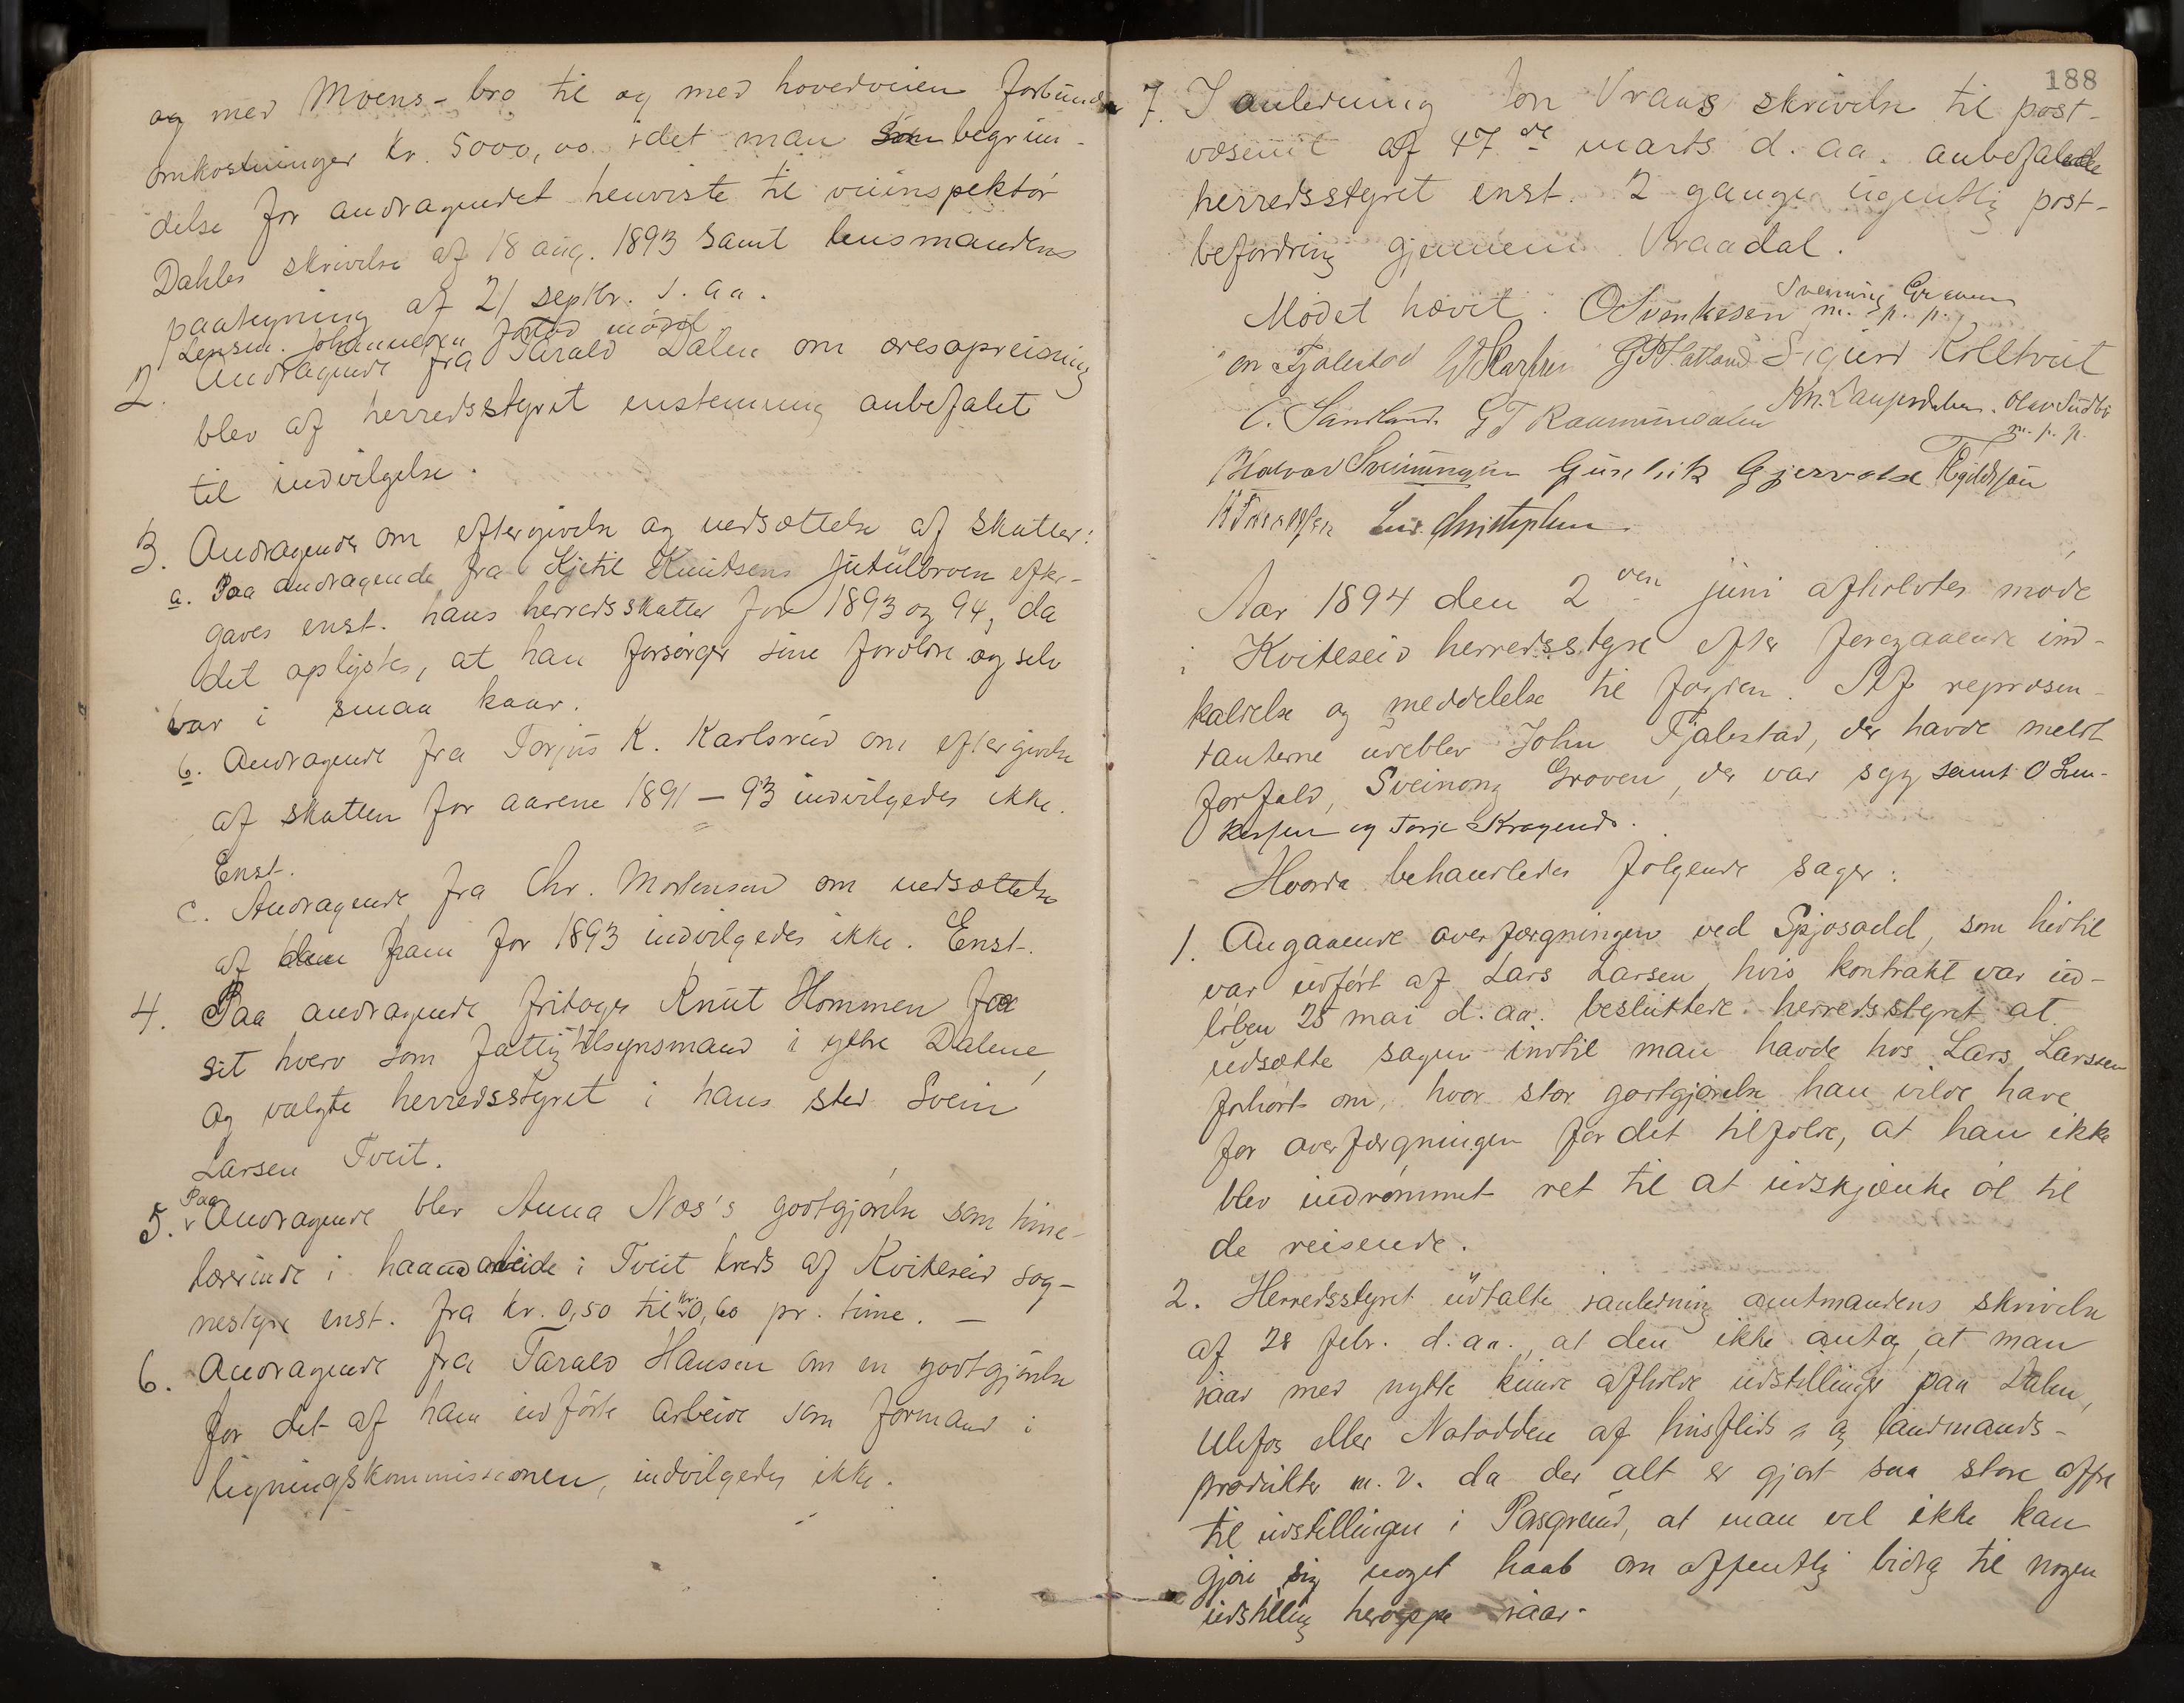 og med Moens-bro til og med hovedveien forbundne
omkostninger kr. 5000,00 idet man som begrun-
delse for andragendet henviste til veiinspektör
Dahles skrivelse af 18 aug. 1893 samt lensmandens
paategning af 21 septbr. s. aa.
Lensm. Johannesen forlod mödet
2. Andragende fra Tarald Dalen om æresopreisning
blev af herredsstyret enstemmig anbefalet
til indvilgelse.
3. Andragende om eftergivelse og nedsættelse af skatter:
a. Paa andragende fra Kjetil Knudsens Jutulbroen efter-
gaves enst. hans herredsskatter for 1893 og 94, da
det oplystes, at han forsörger sine forældre og selv
var i smaa kaar.
b. Andragende fra Torjus K. Karlsveid om eftergivelse
af skatten for aarene 1891 – 93 indvilgedes ikke.
Enst.
c. Andragende fra Chr. Mortensen om nedsættelse
af for 1893 indvilgedes ikke. Enst.
4. Paa andragende fritoges Knut Hommen fra
sit hverv som fattigtilsynsmand i ytre Dalene,
og valgte herredsstyret i hans sted Svein
Larsen Tveit.
5. Paa Andragende blev Anna Næs's godtgjörelse som time-
lærerinde i haandarbeide i Tveit kreds af Kviteseid sog-
nestyre enst. fra kr. 0,50 til kr. 0,60 pr. time. –
6. Andragende fra Tarald Hansen om en godtgjörelse
for det af ham udförte arbeide som formand i
ligningskommissionen, indvilgedes ikke.
188
7. I anledning Jon Vraas skrivelse til post-
væsenet af 17de marts d. aa. anbefalede
herredsstyret enst. 2 gange ugentlig post-
befordring gjennem Vraadal.
Mödet hævet. O Svenkesen Sveinung Groven
m. p. p.
on Fjalestad Sigurd Kolltveit
O. Sandland G T Raamundalen Olav Sudbö
m. p. p.
Halvor Sveinungsen Gunleik Gjervolse T Egildsson
Chr. Christophersen.
Aar 1894 den 2den juni afholdtes möde
i Kviteseid herredsstyre efter foregaaende ind-
kaldelse og meddelelse til fogden. Af repræsen-
tanterne udeblev John Fjalestad, der havde meldt
forfald, Sveinong Groven, der var syg samt O Sven-
kesen og Torje Skrogende.
Hvorda behandledes fölgende sager:
1. Angaaende overfærgningen ved Spjosodd, som hidtil
var udfört af Lars Larsen, hvis kontrakt var ud-
löben 25 mai d. aa. besluttede herredsstyret at
udsætte sagen indtil man havde hos Lars Larsen
forhört om, hvor stor godtgjörelse han vilde have
for overfærgningen for det tilfælde, at han ikke
blev indrömmet ret til at udskjænke öl til
de reisende.
2. Herredsstyret udtalte ianledning amtmandens skrivelse
af 28 febr. d. aa., at den ikke antog, at man
iaar med nytte kunde afholde udstillinger paa Dalen,
Ulefos eller Notodden af husflids- og landmands-
produkter m. v. da der alt er gjort saa store offre
til udstillingen i Porsgrund, at man vel ikke kan
gjöre sig noget haab om offentlig bidrag til nogen
udstilling heroppe iaar.